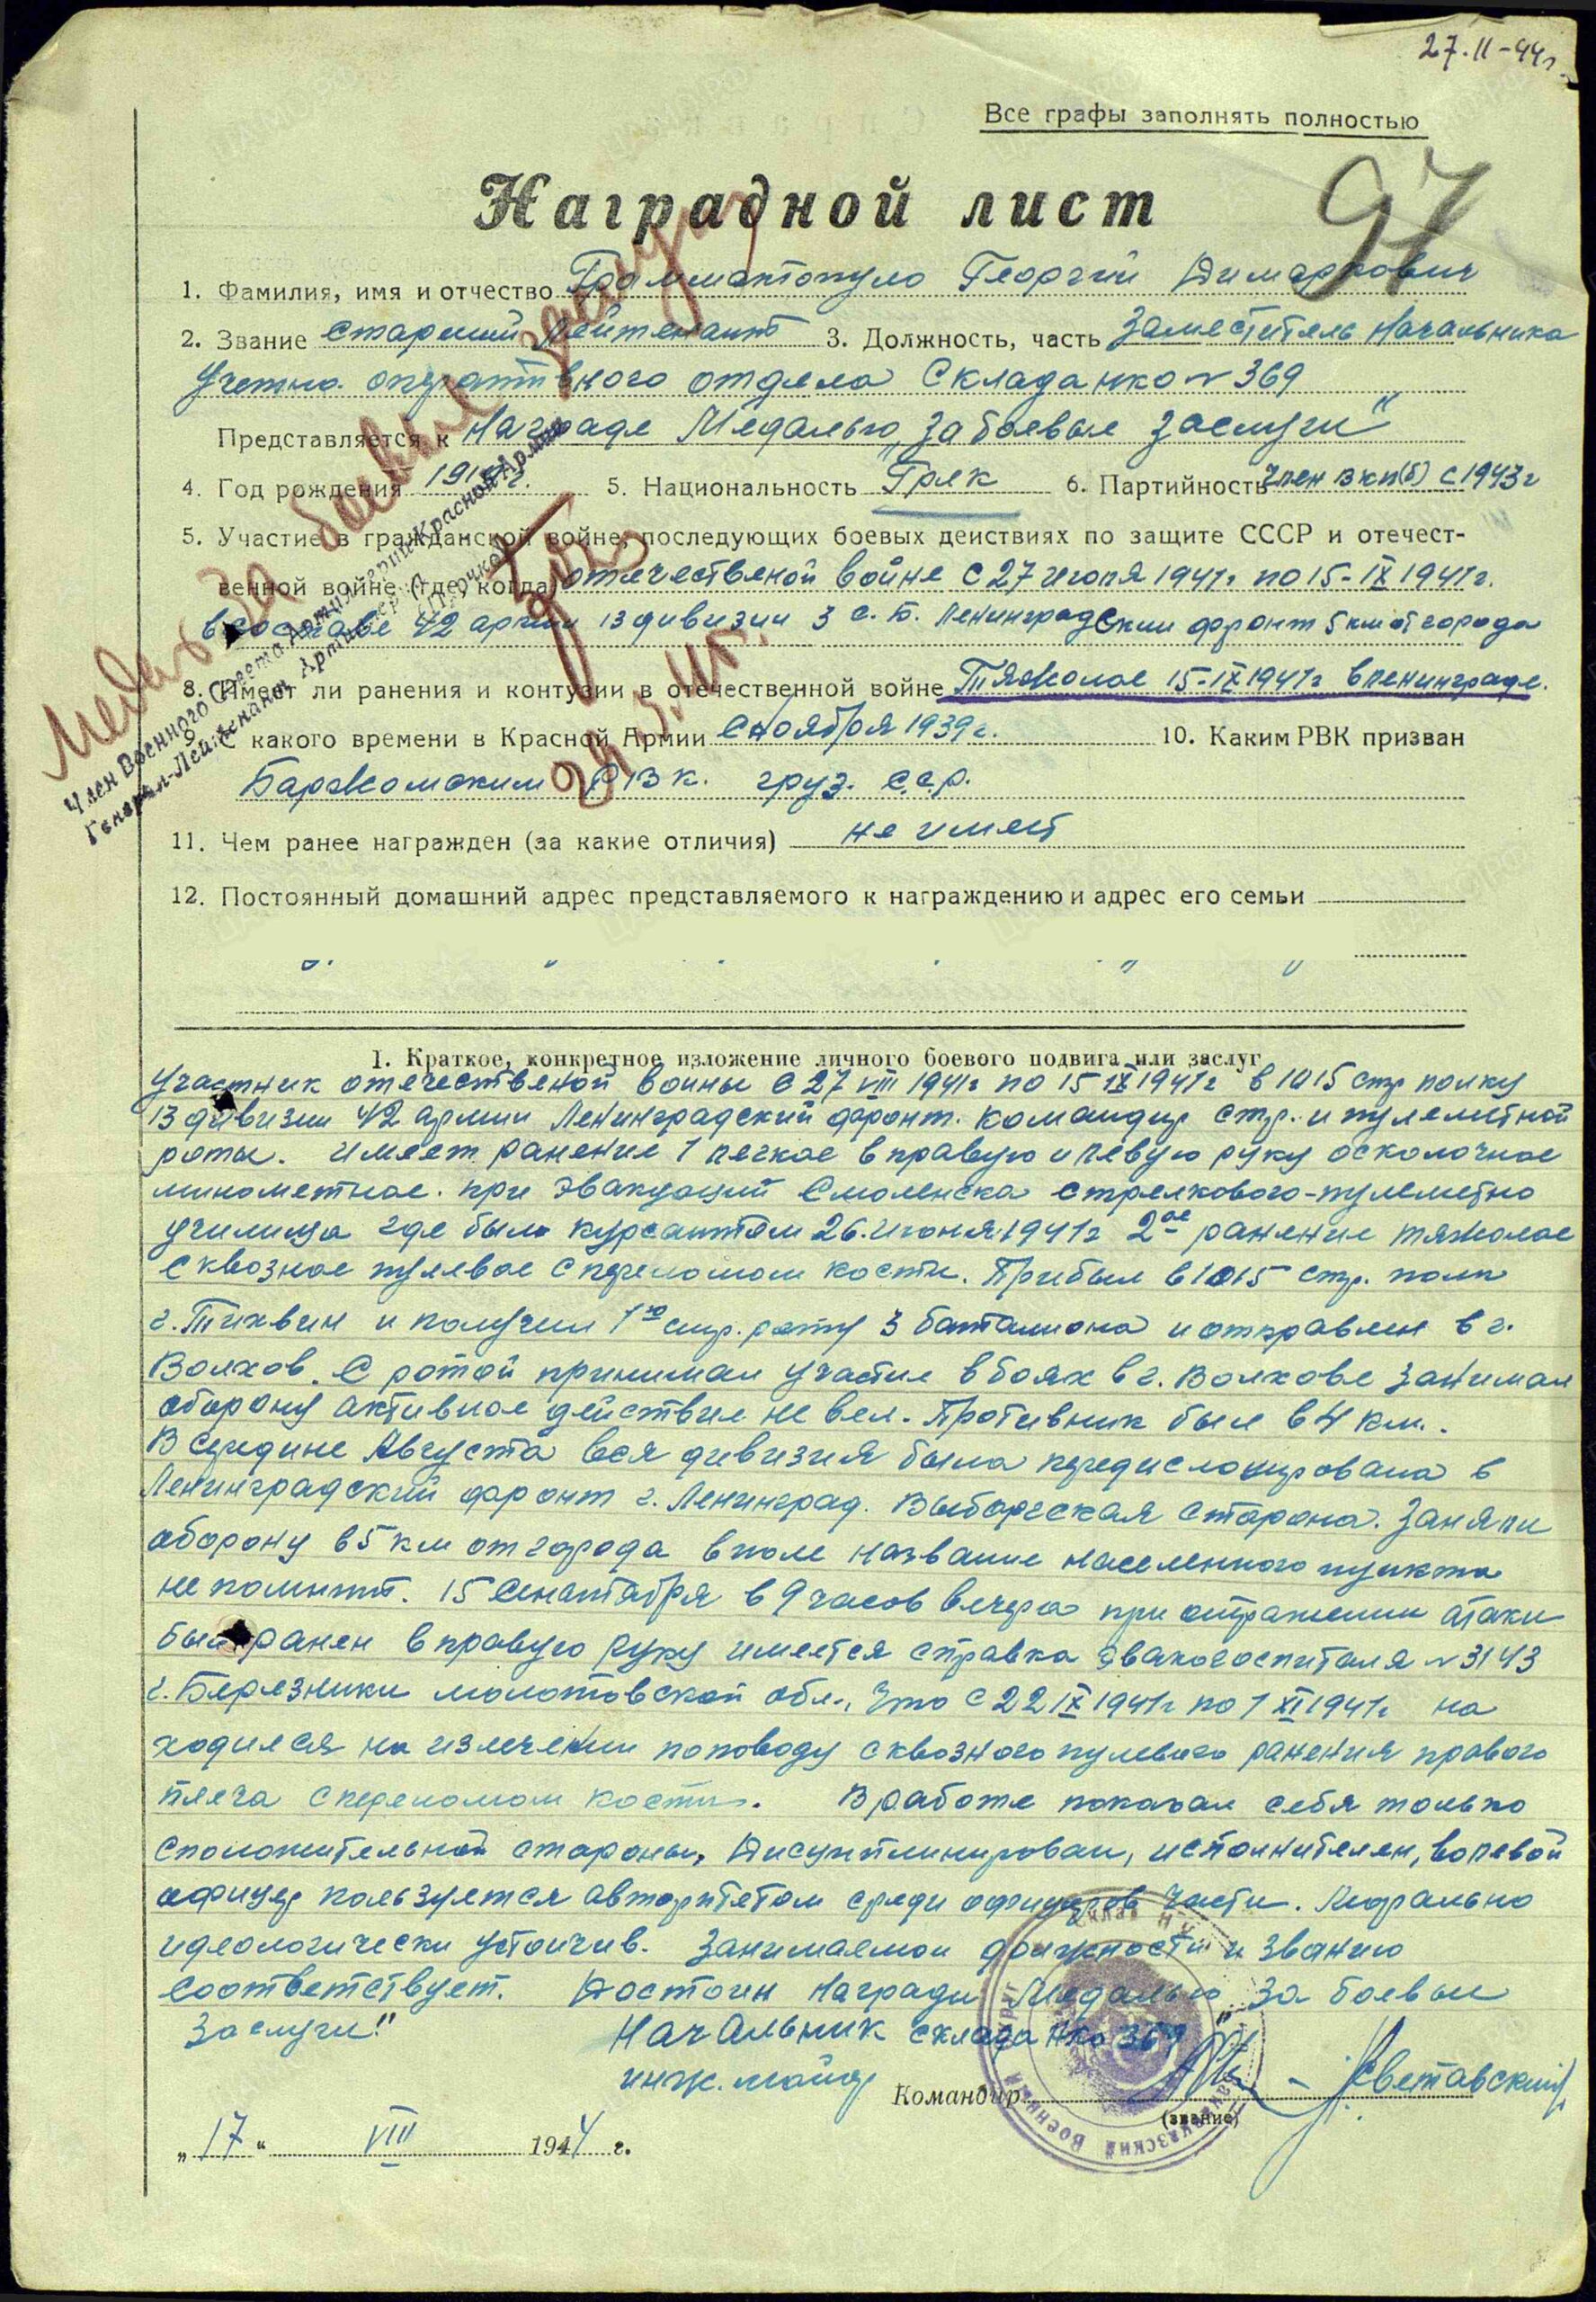 27.II-44г.
Все графы заполнять полностью
97
Наградной лист
1. Фамилия, имя и отчество Грамматопуло Георгий Димаркович
2. Звание Старший Лейтенант 3. Должность, часть Заместитель Начальника
Учетно оперативного отдела Склада нко № 369
Представляется к Награде Медалью „За боевые заслуги"
4. Год рождения 5. Национальность Грек 6. Партийность Член ВКП(б) с 1943г
5. Участие в гражданской войне, последующих боевых действиях по защите СССР и отечест-
венной войне (где, когда) отечественой войне с 27 июля 1941г. по 15-IX 1941г.
в составе 42 армии 13 дивизии 3 с. б. Ленинградский фронт 5 км от города
8. Имеет ли ранения и контузии в отечественной войне Тяжолое 15-IX 1941г в ленинграде.
9. С какого времени в Красной Армии С ноября 1939г. 10. Каким РВК призван
Баржомским РВК. груз. с.с.р.
11. Чем ранее награжден (за какие отличия) не имеет
12. Постоянный домашний адрес представляемого к награждению и адрес его семьи
Медаль За боевые заслуги
Член Военного Совета Артиллерии Красной Армии
Генерал-Лейтенант Артиллерии
1. Краткое, конкретное изложение личного боевого подвига или заслуг
Участник отечественой войны с 27 VIII 1941г по 15 IX 1941г в 1015 стр полку
13 дивизии 42 армии Ленинградский фронт. Командир стр. и пулеметной
роты. Имеет ранение 1 легкое в правую и левую руку осколочное
минометное. при эвакуаций Смоленска стрелкового-пулеметно
училища где был курсантом 26. Июня 1941г 2ое ранение тяжолое
сквозное пулевое с переломом кости. Прибыл в 1015 стр. полк
г. Тихвин и получил 1ю стр. роту 3 баталиона и отправлен в г.
Волхов. С ротой принимал участие в боях в г. Волхове занимал
оборону активное действие не вел. Противник был в 4 км.
В середине Августа вся дивизия была передислоцирована в
Ленинградский фронт г. Ленинград. Выборгская сторона. Заняли
оборону в 5 км от города в поле название населенного пункта
не помнит. 15 Сенатября в 9 часов вечера при отражении атаки
был ранен в правую руку имеется справка эвакогоспиталя № 3143
г. Березники молотовской обл., что с 22 IX 1941г по 1 XI 1941г на
ходился на излечении поповоду сквозного пулевого ранения правого
плеча с переломом кости. В работе показал себя только
с положительной стороны, Дисуиплинирован, исполнителен, волевой
офицер пользуется авторитетом среди офицеров части. Морально
идеологически устоичив. Занимаемой должности и званию
соответствует. Достоин Награди Медалью „За боевые
заслуги"
Начальник склада нко 369
инж. майор Командир Светавский
(звание)
„17" VIII 1944 г.